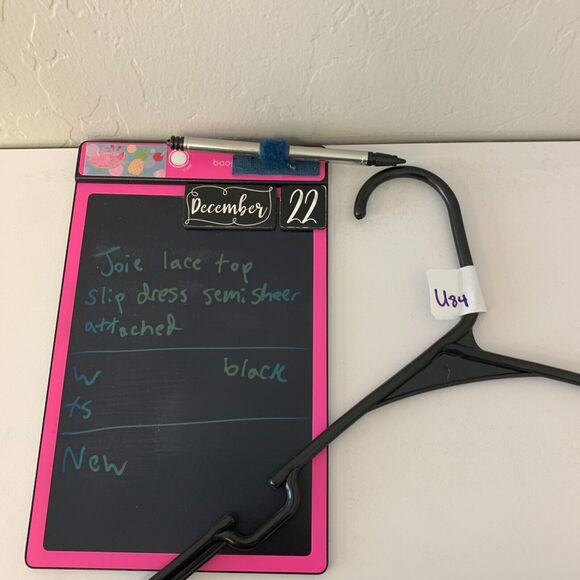 December 22
Joie lace top
slip dress semi sheer
attached
W black
ts
New
U84